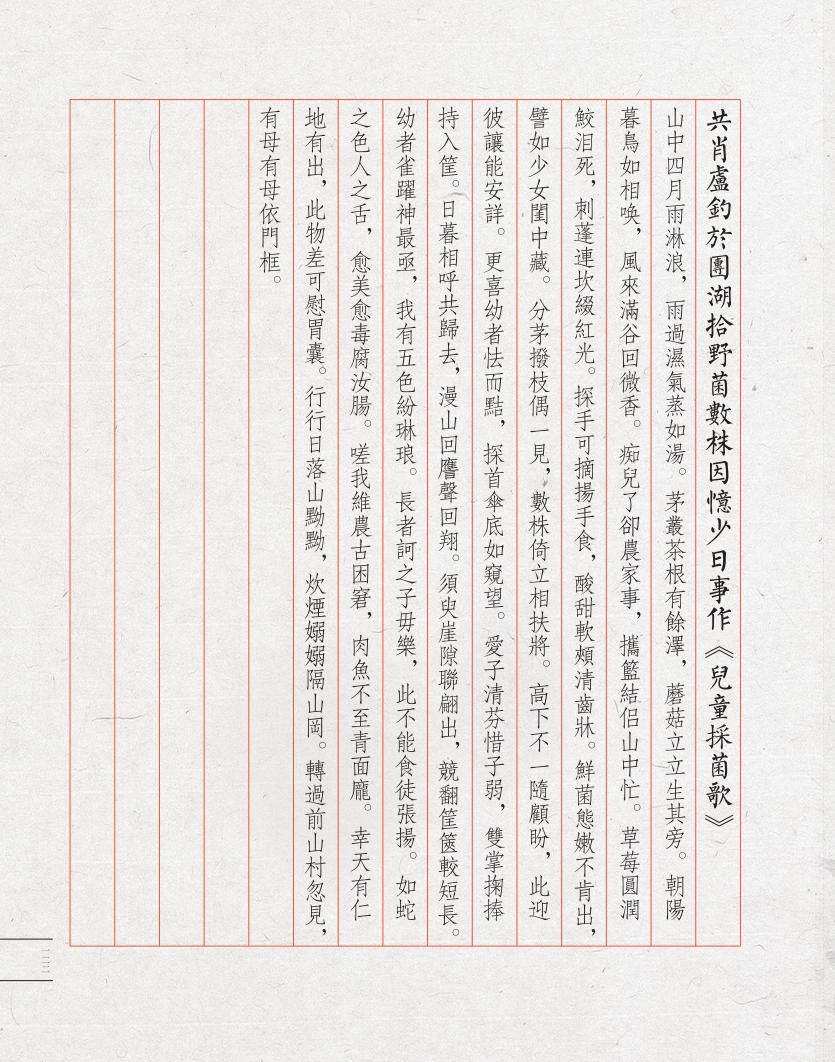 共肖盧釣於團湖拾野菌數株因憶少日事作《兒童採菌歌》
山中四月雨淋浪，雨過濕氣蒸如湯。茅叢茶根有餘澤，蘑菇立立生其旁。朝陽
暮鳥如相喚，風來滿谷回微香。痴兒了卻農家事，攜籃結侶山中忙。草莓圓潤
鮫泪死，刺蓬連坎綴紅光。探手可摘揚手食，酸甜軟頰清齒牀。鮮菌態嫩不肯出，
譬如少女閨中藏。分茅撥枝偶一見，數株倚立相扶將。高下不一隨顧盼，此迎
彼讓能安詳。更喜幼者怯而黠，探首傘底如窺望。愛子清芬惜子弱，雙掌掬捧
持入筐。日暮相呼共歸去，漫山回譍聲回翔。須臾崖隙聯翩出，競翻筐篋較短長。
幼者雀躍神最亟，我有五色紛琳琅。長者訶之子毋樂，此不能食徒張揚。如蛇
之色人之舌，愈美愈毒腐汝腸。嗟我維農古困窘，肉魚不至青面龐。幸天有仁
地有出，此物差可慰胃囊。行行日落山黝黝，炊煙嫋嫋隔山岡。轉過前山村忽見，
有母有母依門框。
一三三